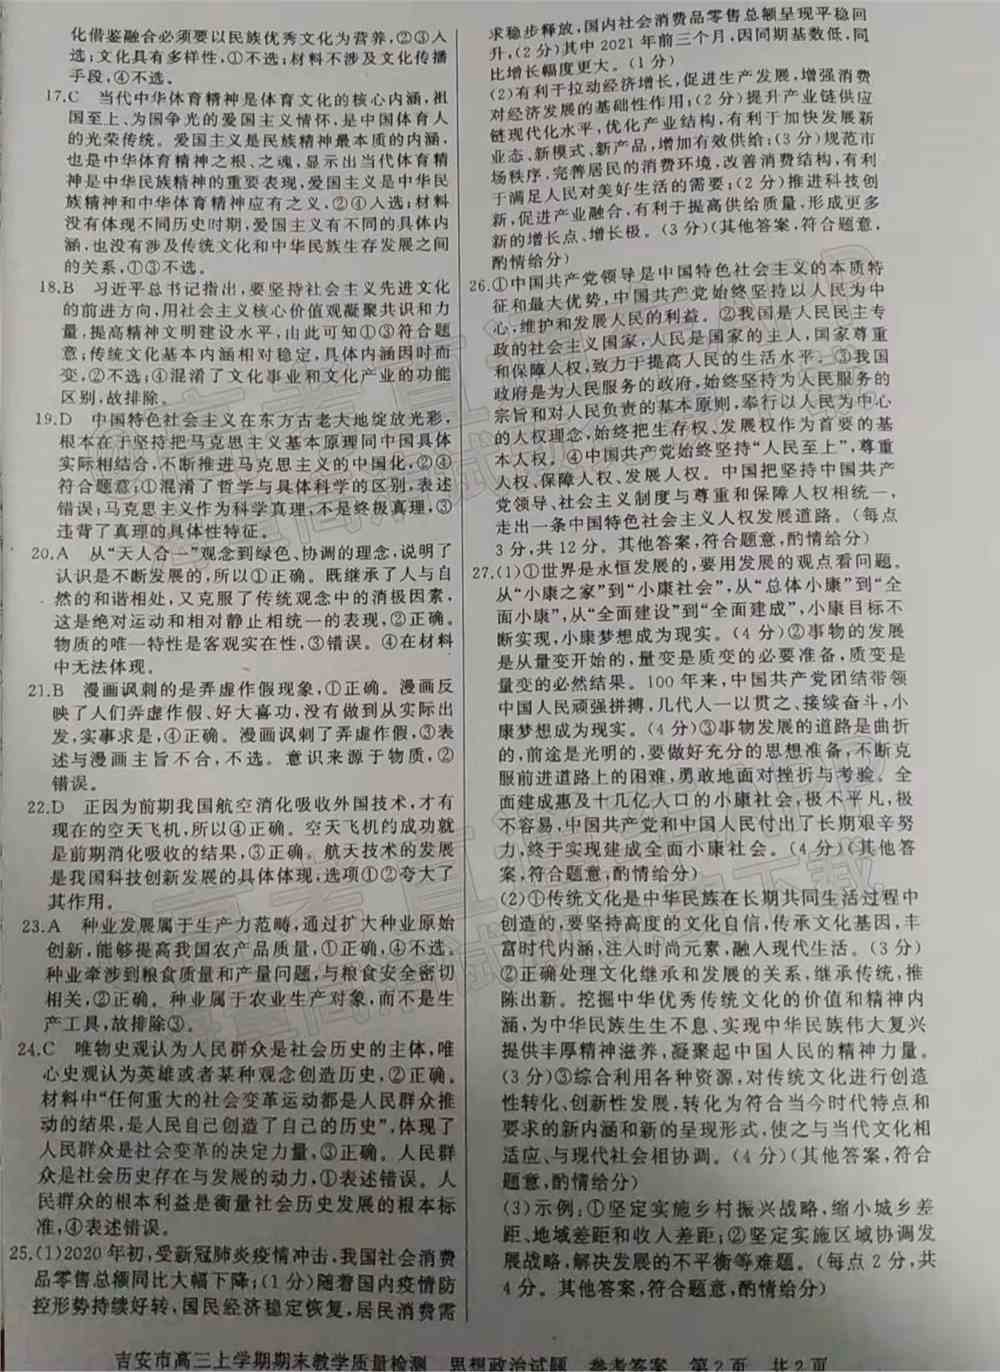 化借鉴融合必须要以民族优秀文化为营养,②③入
选;文化具有多样性,①不选;材料不涉及文化传播
手段,④不选。
17.C 当代中华体育精神是体育文化的核心内涵,祖
国至上、为国争光的爱国主义情怀,是中国体育人
的光荣传统。爱国主义是民族精神最本质的内涵,
也是中华体育精神之根、之魂,显示出当代体育精
神是中华民族精神的重要表现,爱国主义是中华民
族精神和中华体育精神应有之义,②④入选;材料
没有体现不同历史时期,爱国主义有不同的具体内
涵,也没有涉及传统文化和中华民族生存发展之间
的关系,①③不选。
18.B 习近平总书记指出,要坚持社会主义先进文化
的前进方向,用社会主义核心价值观凝聚共识和力
量,提高精神文明建设水平,由此可知①③符合题
意;传统文化基本内涵相对稳定,具体内涵因时而
变,②不选;④混淆了文化事业和文化产业的功能
区别,故排除。
19.D 中国特色社会主义在东方古老大地绽放光彩,
根本在于坚持把马克思主义基本原理同中国具体
实际相结合,不断推进马克思主义的中国化,②④
符合题意;①混淆了哲学与具体科学的区别,表述
错误;马克思主义作为科学真理,不是终极真理,③
违背了真理的具体性特征。
20.A 从“天人合一”观念到绿色、协调的理念,说明了
认识是不断发展的,所以①正确。既继承了人与自
然的和谐相处,又克服了传统观念中的消极因素,
这是绝对运动和相对静止相统一的表现,②正确。
物质的唯一特性是客观实在性,③错误。④在材料
中无法体现。
21.B 漫画讽刺的是弄虚作假现象,①正确。漫画反
映了人们弄虚作假、好大喜功,没有做到从实际出
发,实事求是,④正确。漫画讽刺了弄虚作假,③表
述与漫画主旨不合,不选。意识来源于物质,②
错误。
22.D 正因为前期我国航空消化吸收外国技术,才有
现在的空天飞机,所以④正确。空天飞机的成功就
是前期消化吸收的结果,③正确。航天技术的发展
是我国科技创新发展的具体体现,选项①②夸大了
其作用。
23.A 种业发展属于生产力范畴,通过扩大种业原始
创新,能够提高我国农产品质量,①正确,④不选。
种业牵涉到粮食质量和产量问题,与粮食安全密切
相关,②正确。种业属于农业生产对象,而不是生
产工具,故排除③。
24.C 唯物史观认为人民群众是社会历史的主体,唯
心史观认为英雄或者某种观念创造历史,②正确。
材料中“任何重大的社会变革运动都是人民群众推
动的结果,是人民自己创造了自己的历史”,体现了
人民群众是社会变革的决定力量,③正确。人民群
众是社会历史存在与发展的动力,①表述错误。人
民群众的根本利益是衡量社会历史发展的根本标
准,④表述错误。
25.(1)2020年初,受新冠肺炎疫情冲击,我国社会消费
品零售总额同比大幅下降;(1分)随着国内疫情防
控形势持续好转,国民经济稳定恢复,居民消费需
求稳步释放,国内社会消费品零售总额呈现平稳回
升,(2分)其中2021年前三个月,因同期基数低,同
比增长幅度更大。(1分)
(2)有利于拉动经济增长,促进生产发展,增强消费
对经济发展的基础性作用;(2分)提升产业链供应
链现代化水平,优化产业结构,有利于加快发展新
业态、新模式、新产品,增加有效供给;(3分)规范市
场秩序,完善居民的消费环境,改善消费结构,有利
于满足人民对美好生活的需要;(2分)推进科技创
新,促进产业融合,有利于提高供给质量,形成更多
新的增长点、增长极。(3分)(其他答案,符合题意,
酌情给分)
26.①中国共产党领导是中国特色社会主义的本质特
征和最大优势,中国共产党始终坚持以人民为中
心,维护和发展人民的利益。②我国是人民民主专
政的社会主义国家,人民是国家的主人,国家尊重
和保障人权,致力于提高人民的生活水平。③我国
政府是为人民服务的政府,始终坚持为人民服务的
宗旨和对人民负责的基本原则,奉行以人民为中心
的人权理念,始终把生存权、发展权作为首要的基
本人权。④中国共产党始终坚持“人民至上”,尊重
人权、保障人权、发展人权。中国把坚持中国共产
党领导、社会主义制度与尊重和保障人权相统一,
走出一条中国特色社会主义人权发展道路。(每点
3分,共12分。其他答案,符合题意,酌情给分)
27.(1)①世界是永恒发展的,要用发展的观点看问题。
从“小康之家”到“小康社会”,从“总体小康”到“全
面小康”,从“全面建设”到“全面建成”,小康目标不
断实现,小康梦想成为现实。(4分)②事物的发展
是从量变开始的,量变是质变的必要准备,质变是
量变的必然结果。100年来,中国共产党团结带领
中国人民顽强拼搏,几代人一以贯之、接续奋斗,小
康梦想成为现实。(4分)③事物发展的道路是曲折
的,前途是光明的,要做好充分的思想准备,不断克
服前进道路上的困难,勇敢地面对挫折与考验。全
面建成惠及十几亿人口的小康社会,极不平凡,极
不容易,中国共产党和中国人民付出了长期艰辛努
力,终于实现建成全面小康社会。(4分)(其他答
案,符合题意,酌情给分)
(2)①传统文化是中华民族在长期共同生活过程中
创造的,要坚持高度的文化自信,传承文化基因,丰
富时代内涵,注入时尚元素,融入现代生活。(3分)
②正确处理文化继承和发展的关系,继承传统,推
陈出新。挖掘中华优秀传统文化的价值和精神内
涵,为中华民族生生不息、实现中华民族伟大复兴
提供丰厚精神滋养,凝聚起中国人民的精神力量。
(3分)③综合利用各种资源,对传统文化进行创造
性转化、创新性发展,转化为符合当今时代特点和
要求的新内涵和新的呈现形式,使之与当代文化相
适应、与现代社会相协调。(4分)(其他答案,符合
题意,酌情给分)
(3)示例:①坚定实施乡村振兴战略,缩小城乡差
距、地域差距和收入差距;②坚定实施区域协调发
展战略,解决发展的不平衡等难题。(每点2分,共
4分。其他答案,符合题意,酌情给分)
吉安市高三上学期期末教学质量检测 思想政治试题 参考答案 第2页 共2页